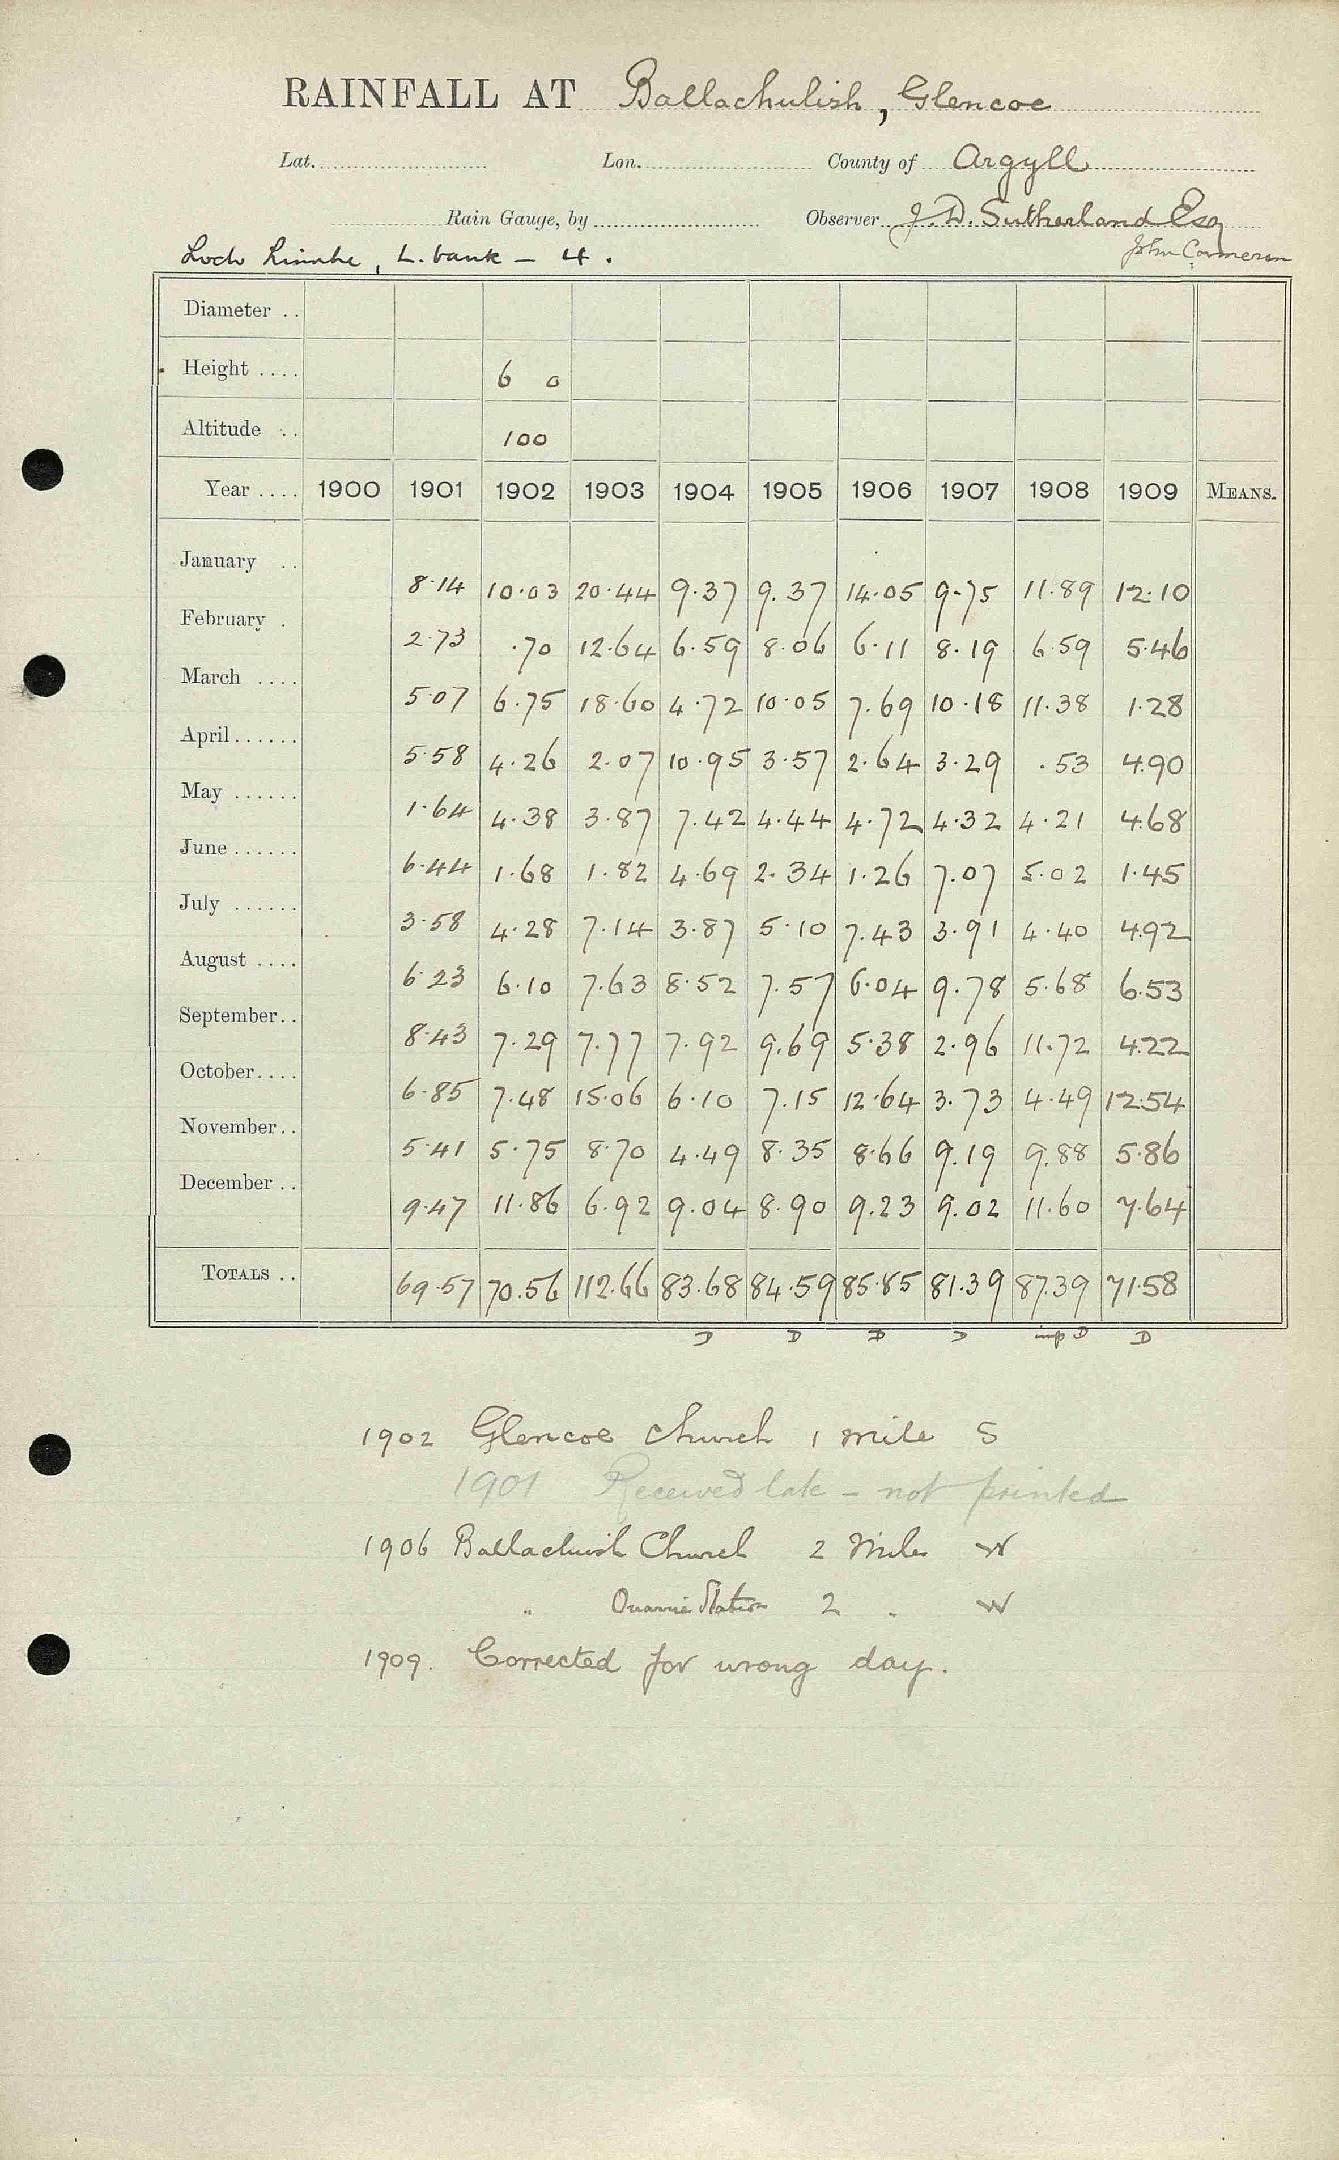 RAINFALL AT Ballachulish, Glencoe
Lat. Lon. County of Argyll
Rain Gauge, by Observer J. D. Sutherland Esq
Loch Linnhe, L. bank – 4. John Cameron
Diameter ..
Height .... 6 0
Altitude .. 100
Year .... 1900 1901 1902 1903 1904 1905 1906 1907 1908 1909 MEANS.
January .. 8.14 10.03 20.44 9.37 9.37 14.05 9.75 11.89 12.10
February . 2.73 .70 12.64 6.59 8.06 6.11 8.19 6.59 5.46
March .... 5.07 6.75 18.60 4.72 10.05 7.69 10.18 11.38 1.28
April...... 5.58 4.26 2.07 10.95 3.57 2.64 3.29 .53 4.90
May ...... 1.64 4.38 3.87 7.42 4.44 4.72 4.32 4.21 4.68
June...... 6.44 1.68 1.82 4.69 2.34 1.26 7.07 5.02 1.45
July ...... 3.58 4.28 7.14 3.87 5.10 7.43 3.91 4.40 4.92
August .... 6.23 6.10 7.63 8.52 7.57 6.04 9.78 5.68 6.53
September.. 8.43 7.29 7.77 7.92 9.69 5.38 2.96 11.72 4.22
October.... 6.85 7.48 15.06 6.10 7.15 12.64 3.73 4.49 12.54
November.. 5.41 5.75 8.70 4.49 8.35 8.66 9.19 9.88 5.86
December .. 9.47 11.86 6.92 9.04 8.90 9.23 9.02 11.60 7.64
TOTALS .. 69.57 70.56 112.66 83.68 84.59 85.85 81.39 87.39 71.58
D D D D imp D D
1902 Glencoe Church 1 mile S
1901 Received late – not printed
1906 Ballachulish Church 2 Miles W
" Quarrie Station 2 " W
1909. Corrected for wrong day.